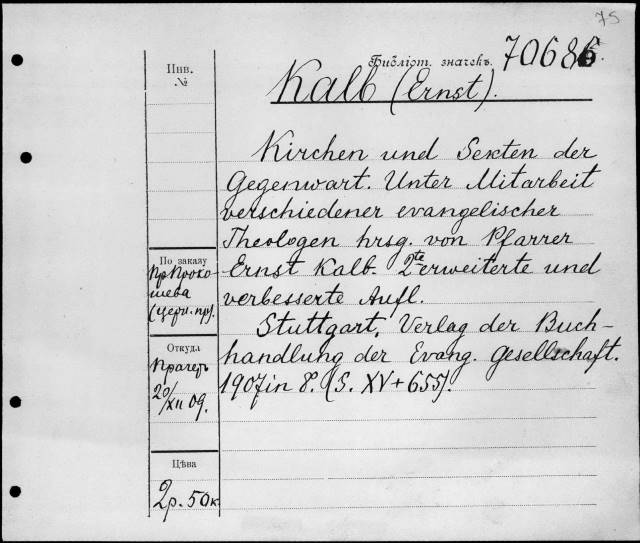 75
Инв.
№
Библіот. значекъ.
Kalb (Ernst).
Kirchen und Sekten der
Gegenwart. Unter Mitarbeit
verschiedener evangelischer
Theologen hrsg. von Pfarrer
Ernst Kalb. 2te erweiterte und
verbesserte Aufl.
Stuttgart, Verlag der Buch-
handlung der Evang. Gesellschaft.
1907 in 8. (S. XV + 655).
По заказу
Пр. Проко-
шева
(церк. пр).
Откуда
Прагеръ
20/XII 09.
Цѣна
2р. 50к